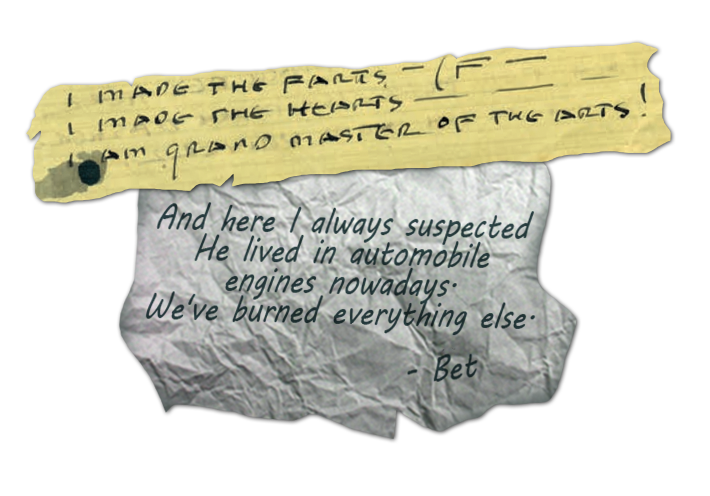 I MADE THE FARTS — (F —
I MADE THE HEARTS — — —
I AM GRAND MASTER OF THE ARTS!
And here I always suspected
He lived in automobile
engines nowadays.
We've burned everything else.
- Bet